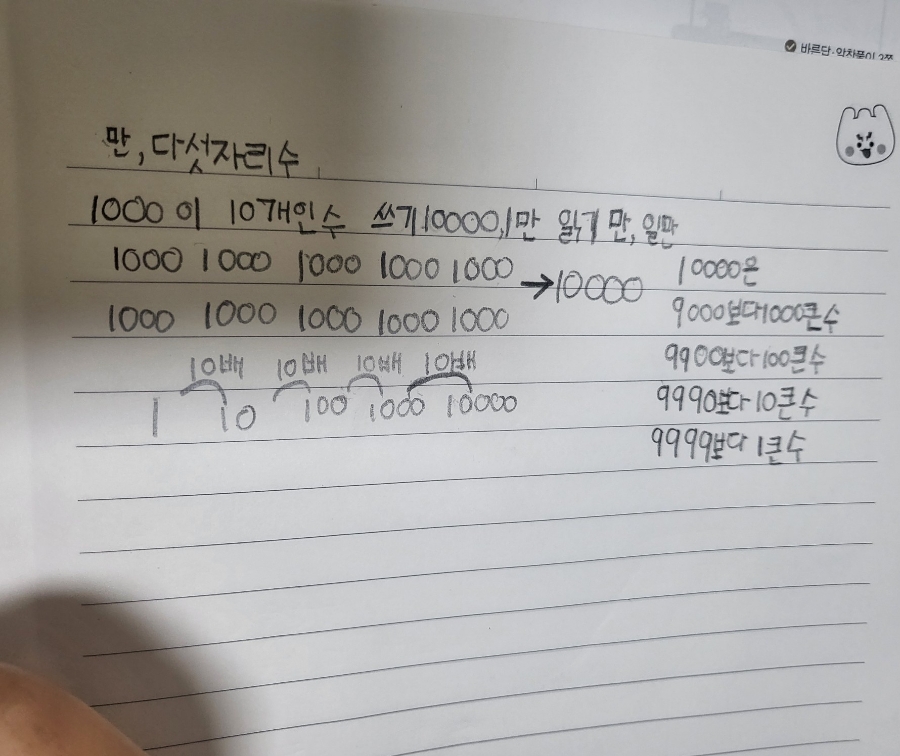 바르답·알찬풀이 2쪽
만, 다섯자리수
1000이 10개인수 쓰기 10000, 1만 읽기 만, 일만
1000 1000 1000 1000 1000
1000 1000 1000 1000 1000
→10000
10배 10배 10배 10배
1 10 100 1000 10000
10000은
9000보다 1000큰수
9900보다 100큰수
9990보다 10큰수
9999보다 1큰수